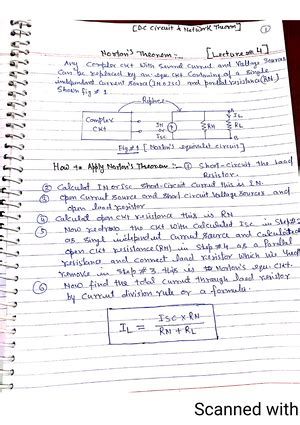 [DC Circuit & Network Theorm]
①
Norton's Theorem:-
[Lecture # 4]
Any Complex CKT with Several Current and Voltage Sources
Can be replaced by an eqn. CKT Containing of a Single
independent Current Source (IN or Isc) and Parallel resistance (RN)
Shown fig # 1
Replace
Complex
CKT
IN
or
Isc
RN
A
IL
RL
B
Fig # 1 [Norton's equivalent circuit]
How to Apply Norton's Theorem:- ① Short-Circuit the Load
Resistor.
② Calculat IN or Isc Short-Circuit Current this is IN.
③ Open Current Source and Short Circuit Voltage Sources and
open load resistor
④ Calculat open CKT resistance this is RN
⑤ Now redraw the CKT with Calculated Isc in Step # 2
as Single independent Current Source and Calculated
open CKT resistance (RN) in Step # 4 as a Parallel
resistance and Connect load resistor which we
remove in Step # 3 this is Norton's eqn. CKT.
⑥ Now find the total Current through load resistor
by Current division rule or a formula.
IL = Isc × RN
RN + RL
Scanned with